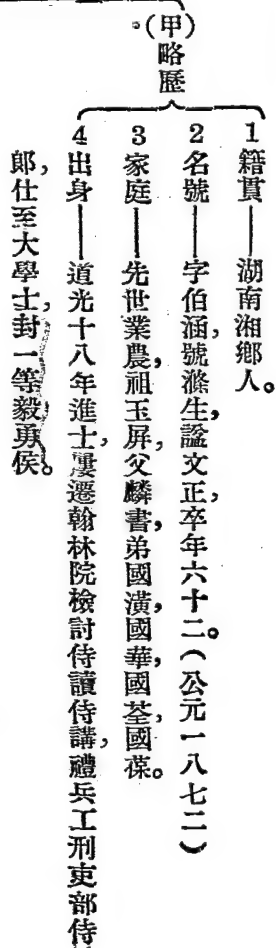 （甲）略歷。
1 籍貫——湖南湘鄉人。
2 名號——字伯涵，號滌生，諡文正，卒年六十二。（公元一八七二）
3 家庭——先世業農，祖玉屏，父麟書，弟國潢，國華，國荃，國葆。
4 出身——道光十八年進士，屢遷翰林院檢討侍讀侍講，禮兵工刑吏部侍
郎，仕至大學士，封一等毅勇侯。